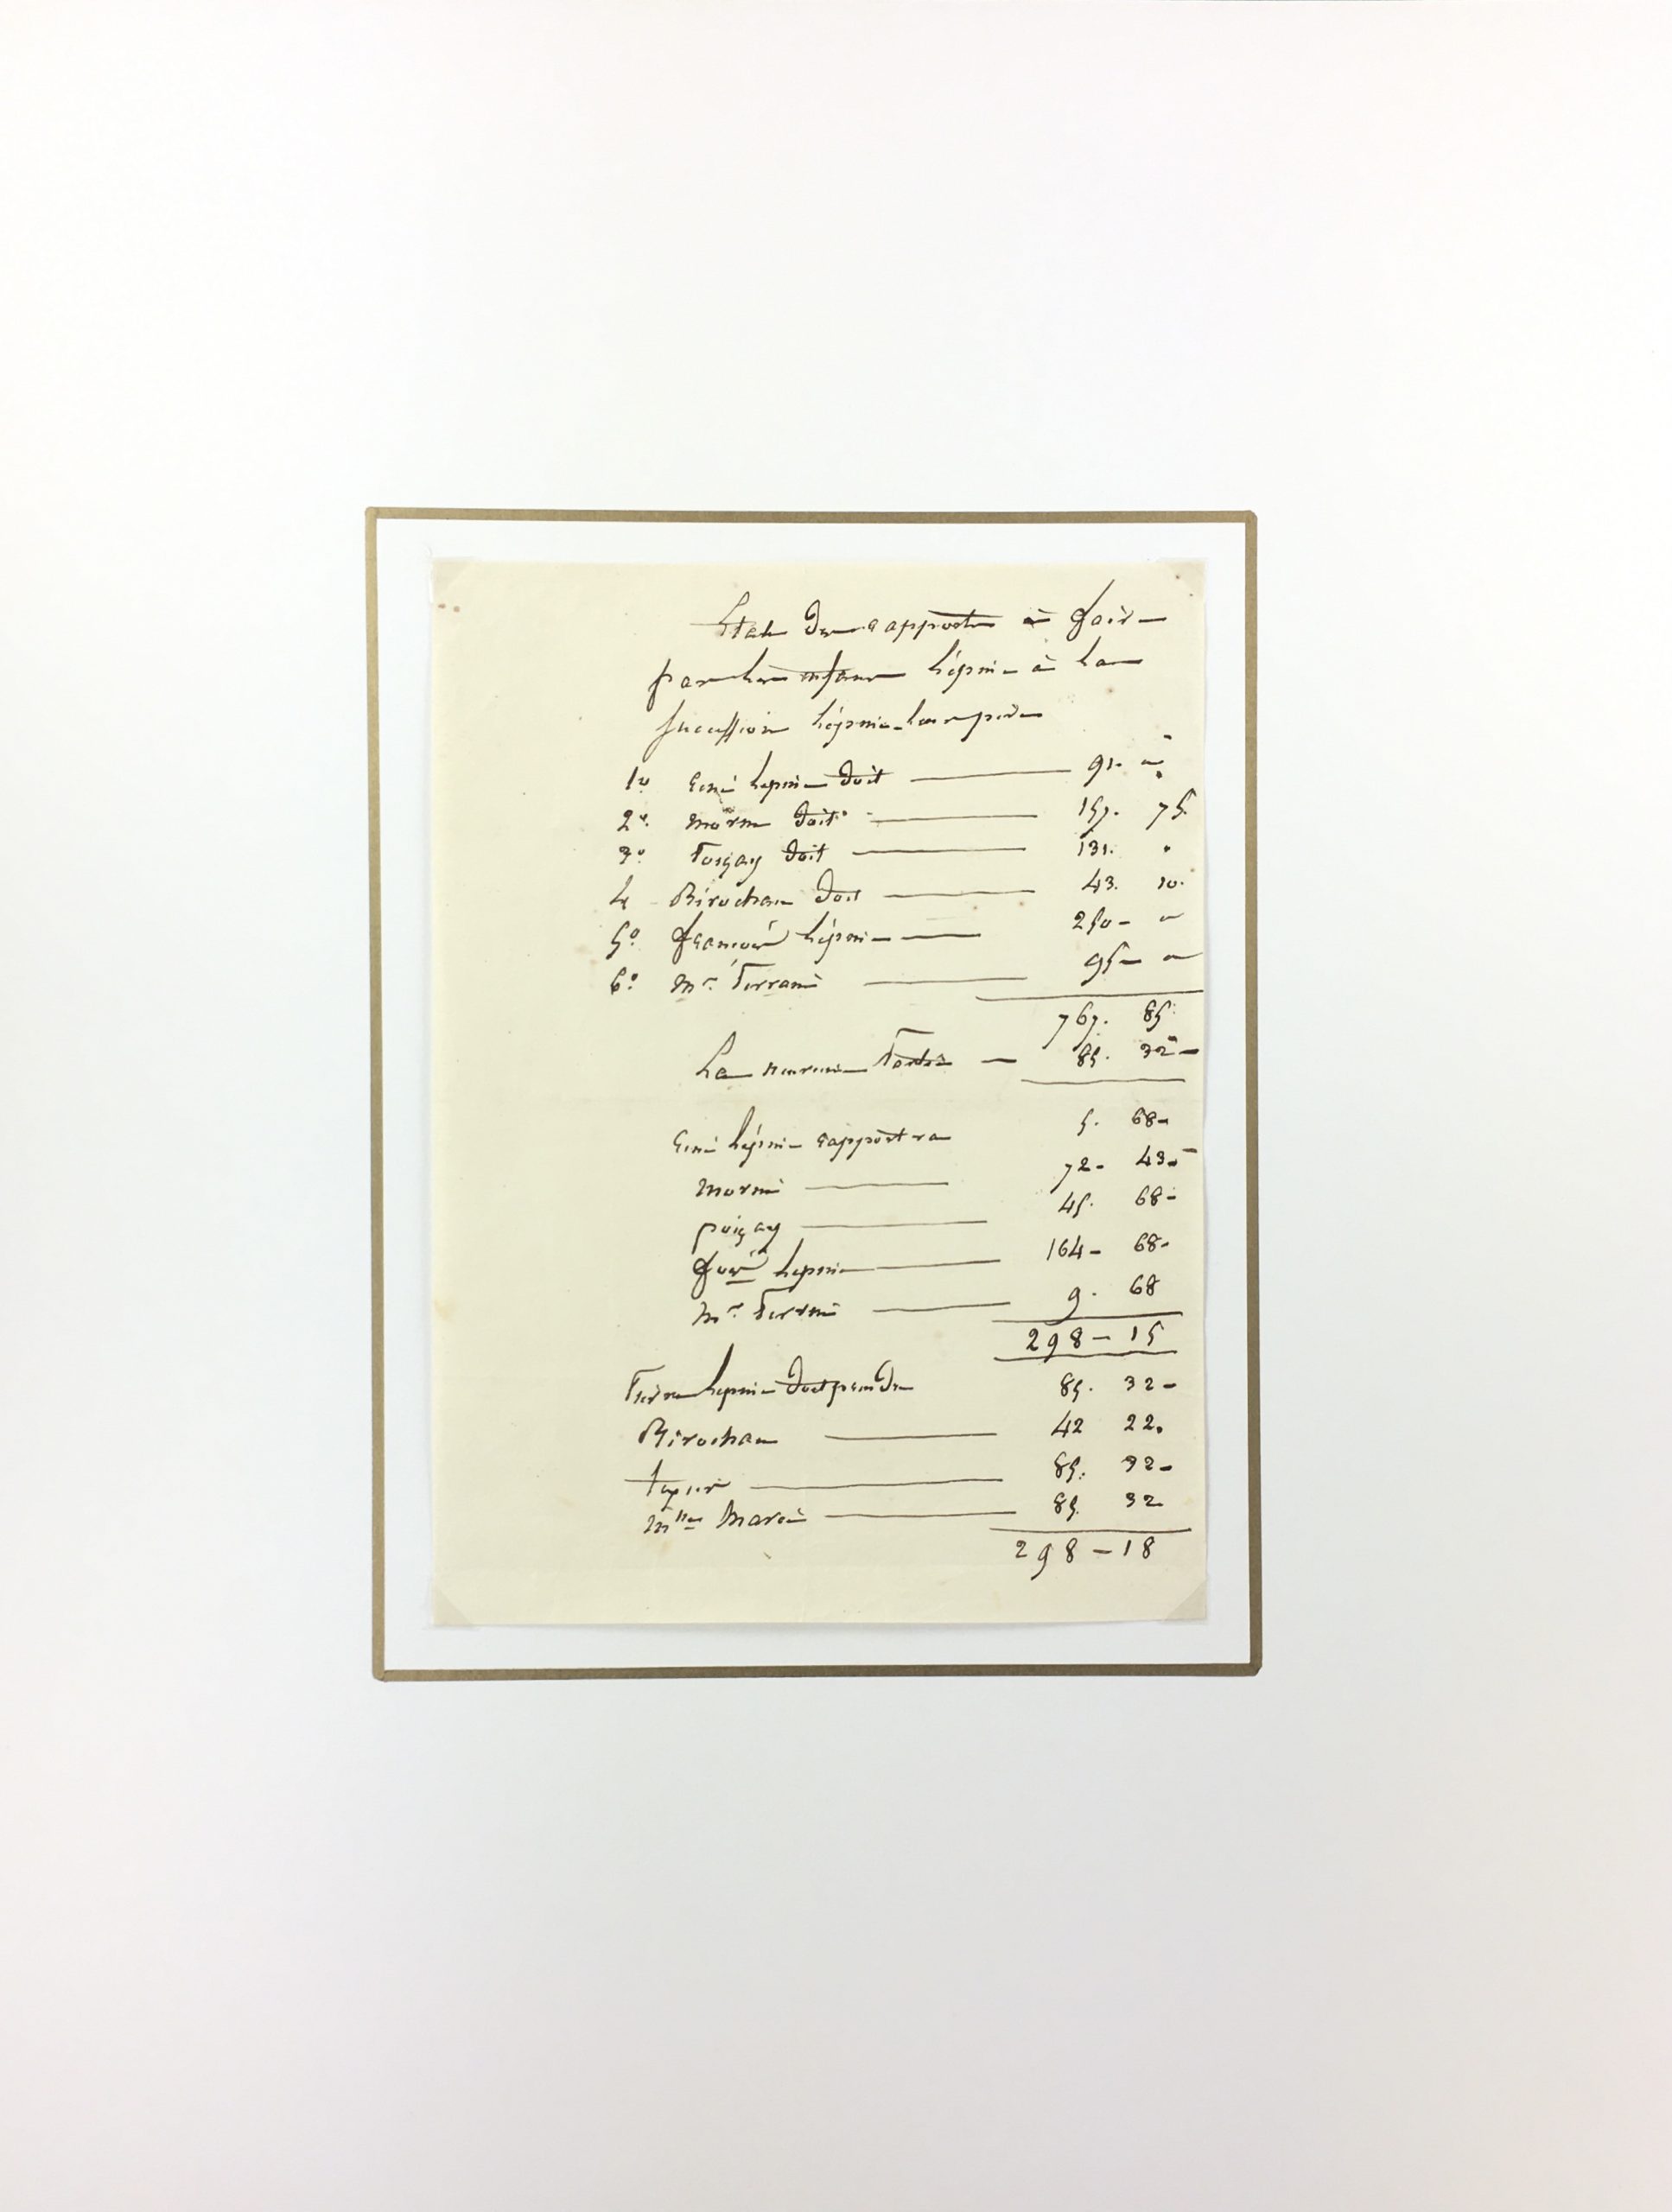 Etat des rapports à faire
par les enfans Lépine à la
succession Lépine leur père
1º René Lepine doit 91. "
2º. Morin doit 157. 75.
3º Poiçay doit 131. "
4 Birocheau doit 43. 10.
5º. François Lépine 250 - "
6º. Mr. 95 - "
767. 85
La neuvième Partie 85. 32 -
René Lépine rapportera 5. 68 -
Morin 72 - 43 -
poiçay 45. 68 -
Fois Lepine 164 - 68 -
Mr 9. 68
298 - 15
Pierre Lepine doit prendre 85. 32 -
Birocheau 42 22.
85. 32 -
Mlle Marie 85. 32
298 - 18